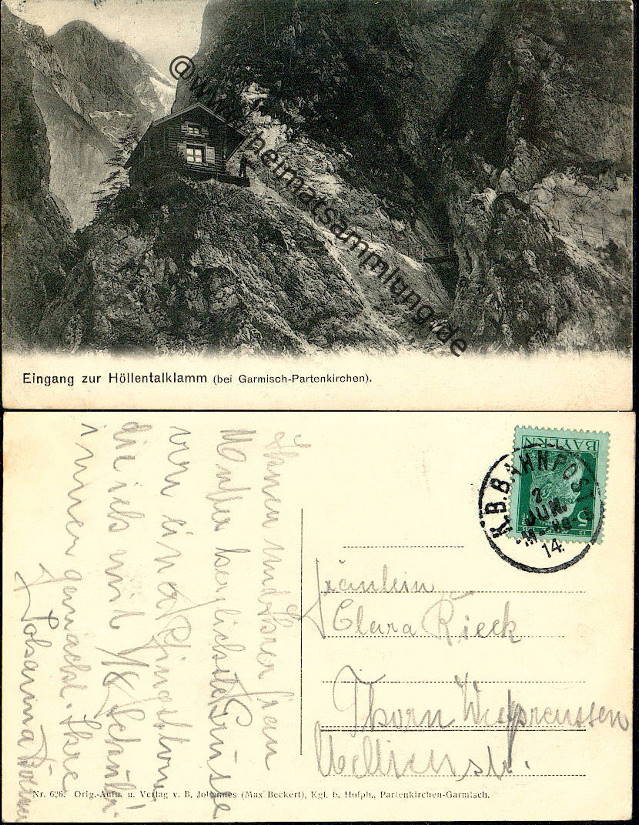 @ www.heimatsammlung.de
Eingang zur Höllentalklamm (bei Garmisch-Partenkirchen).
BAYERN
5
K.B.BAHNPOST
2.
JUN.
14.
Fräulein
Clara Rieck
Thorn Westpreussen
Mellienstr.
Ihnen und Ihrer Frau
Mutter herzlichste Grüsse
von einer Pfingsttour
die ich mit 18 Schüler.
innen gemacht. Ihre
Johanna
Nr. 626. Orig.-Aufn. u. Verlag v. B. Johannes (Max Beckert), Kgl. b. Hofph., Partenkirchen-Garmisch.